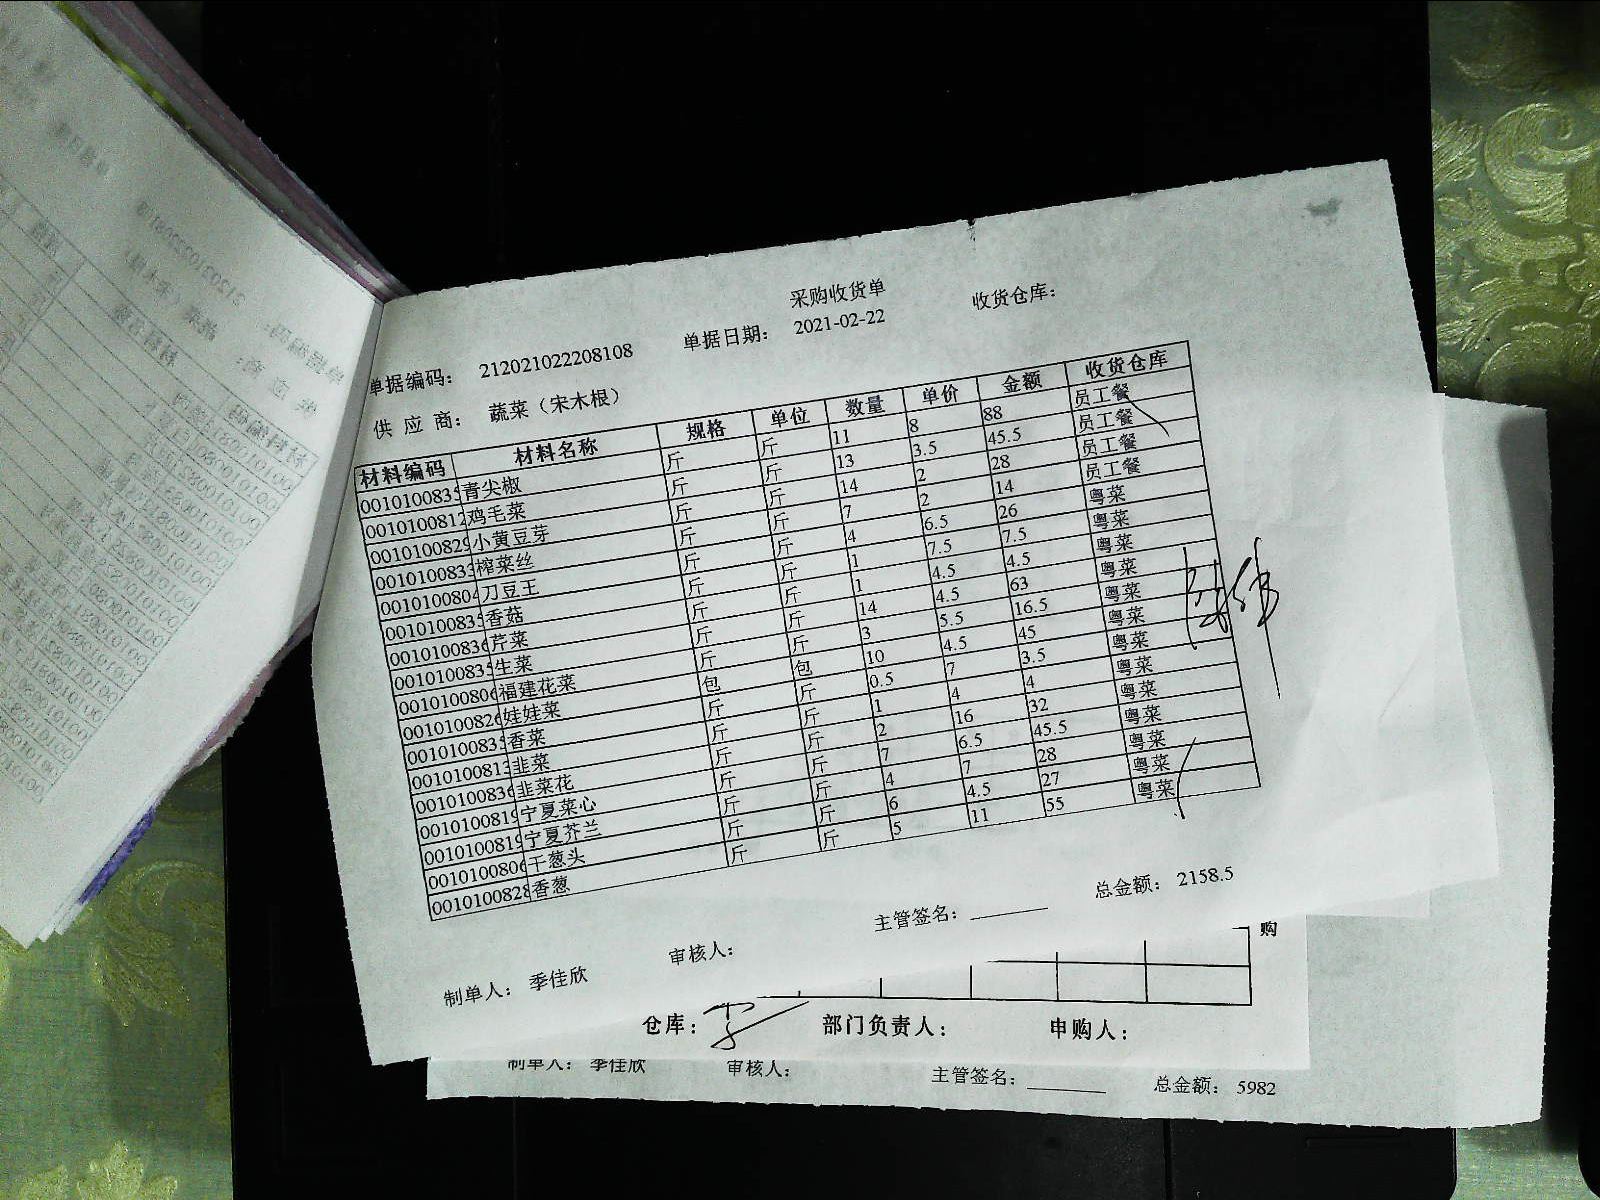 采购收货单
单据编码： 212021022208108 单据日期： 2021-02-22 收货仓库：
供 应 商： 蔬菜（宋木根）
材料编码 材料名称 规格 单位 数量 单价 金额 收货仓库
0010100835 青尖椒 斤 斤 11 8 88 员工餐
0010100812 鸡毛菜 斤 斤 13 3.5 45.5 员工餐
0010100829 小黄豆芽 斤 斤 14 2 28 员工餐
0010100833 榨菜丝 斤 斤 7 2 14 员工餐
0010100804 刀豆王 斤 斤 4 6.5 26 粤菜
0010100835 香菇 斤 斤 1 7.5 7.5 粤菜
0010100836 芹菜 斤 斤 1 4.5 4.5 粤菜
0010100835 生菜 斤 斤 14 4.5 63 粤菜
0010100806 福建花菜 斤 斤 3 5.5 16.5 粤菜
0010100826 娃娃菜 包 包 10 4.5 45 粤菜
0010100835 香菜 斤 斤 0.5 7 3.5 粤菜
0010100813 韭菜 斤 斤 1 4 4 粤菜
0010100836 韭菜花 斤 斤 2 16 32 粤菜
0010100819 宁夏菜心 斤 斤 7 6.5 45.5 粤菜
0010100819 宁夏芥兰 斤 斤 4 7 28 粤菜
0010100806 干葱头 斤 斤 6 4.5 27 粤菜
0010100828 香葱 斤 斤 5 11 55 粤菜
制单人： 季佳欣 审核人： 主管签名： 总金额： 2158.5
购
仓库： 部门负责人： 申购人：
制单人： 季佳欣 审核人： 主管签名： 总金额： 5982